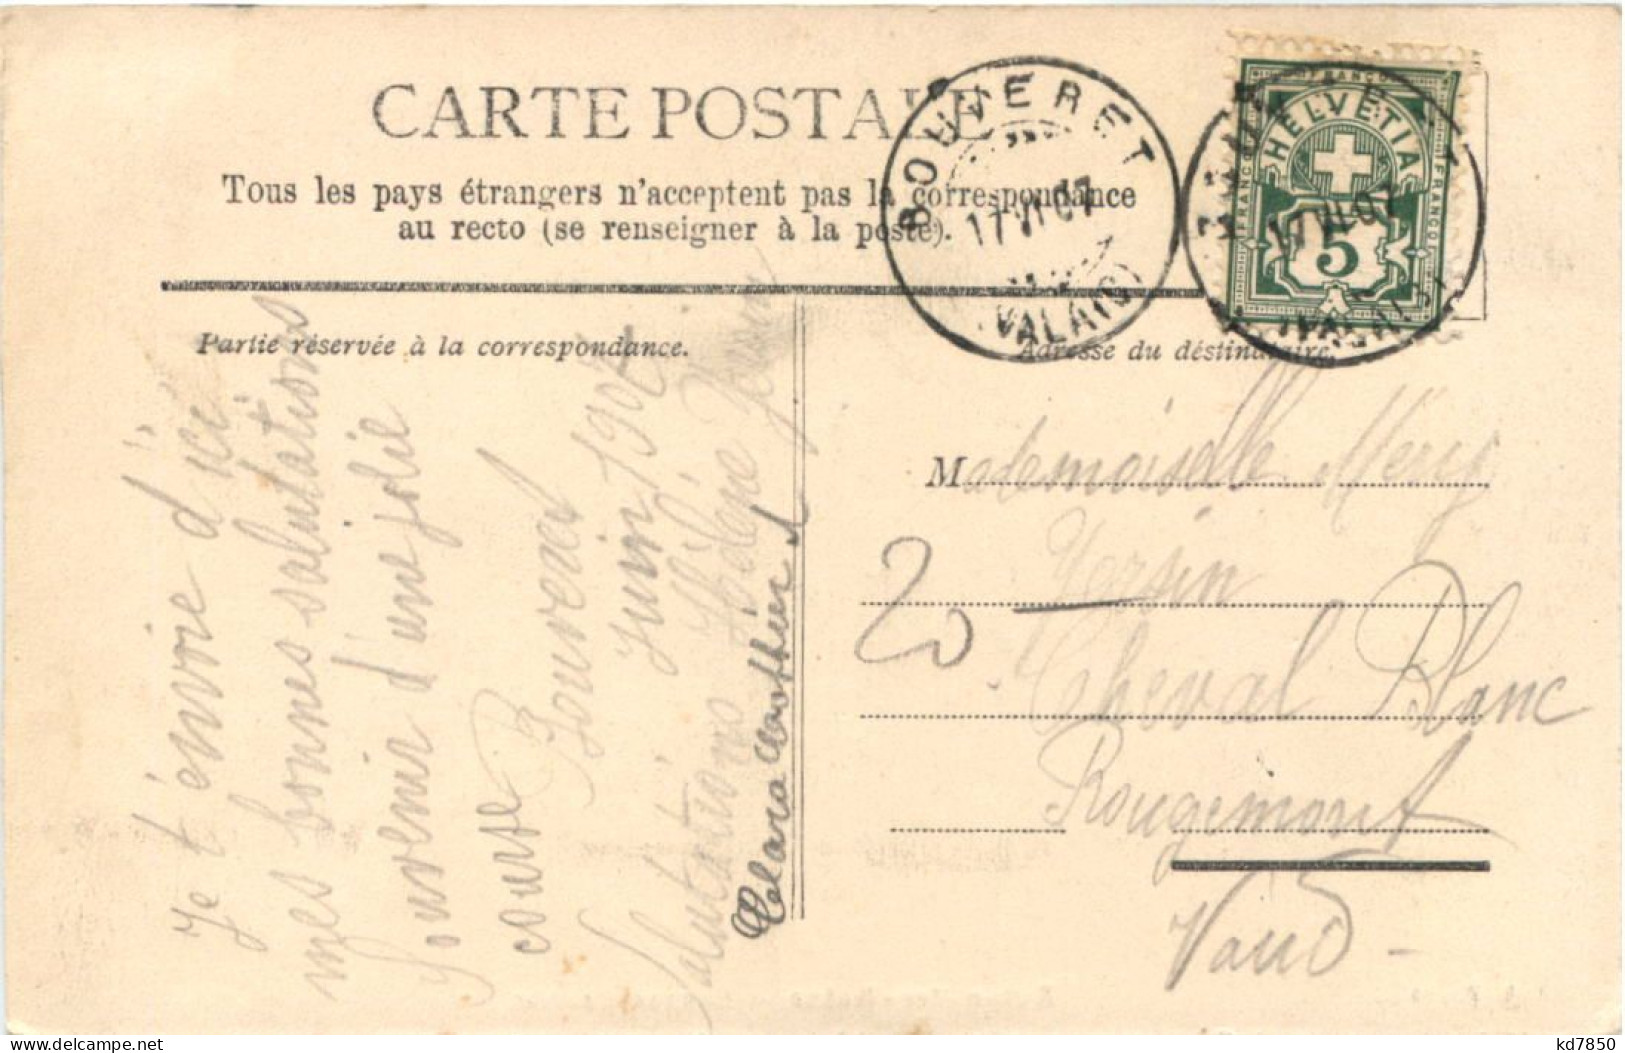 CARTE POSTALE
Tous les pays étrangers n'acceptent pas la correspondance
au recto (se renseigner à la poste).
BOUVERET
17 VI 07
(VALAIS)
BOUVERET
17 VI 07
(VALAIS)
FRANCO
HELVETIA
FRANCO
FRANCO
5
Partie réservée à la correspondance.
Adresse du déstinataire.
Je t'envoie d'ici
mes bonnes salutations
Souvenir d'une jolie
course
Bouveret
Juin 1907
Salutations Hélène Yersin
Clara
Mademoiselle Mery
Yersin
Cheval Blanc
Rougemont
Vaud
20
kd7850